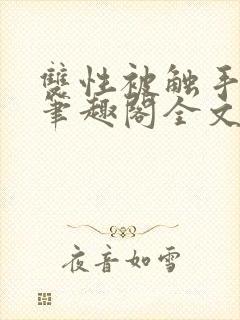 雙性被触手
筆趣阁全文
夜音如雪